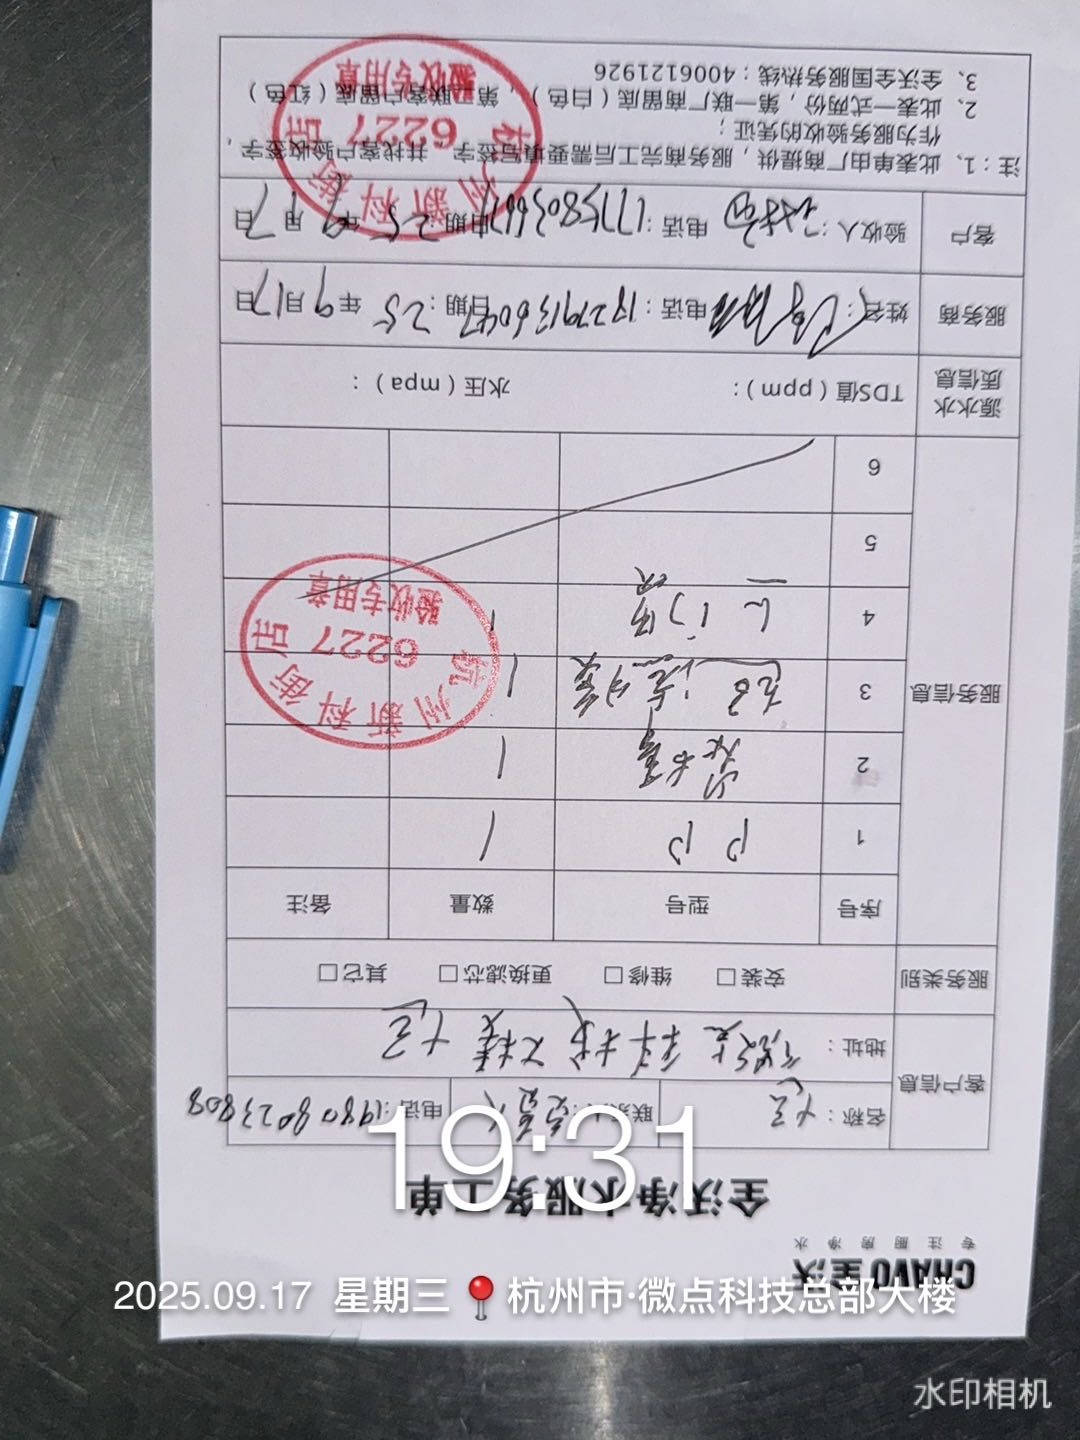 CHAVO 全沃
专注厨房净水
全沃净水服务工单
客户信息
名称：七豆 联系人： 电话：19808023808
地址：微点科技大楼 七豆
服务类别 安装□ 维修□ 更换滤芯□ 其它□
服务信息
序号 型号 数量 备注
1 PP 1
2 1
3 1
4 1
5
6
源水水质信息 TDS值（ppm）： 水压（mpa）：
服务商 姓名： 电话：18279136047 日期：25年9月17日
客户 验收人： 电话： 日期：25年9月17日
注：1、此表单由厂商提供，服务商完工后需要填写签字，并找客户验收签字，
作为服务验收的凭证；
2、此表一式两份，第一联厂商留底（白色），第二联客户留底（红色）
3、全沃全国服务热线：4006121926
杭州新科街店
6227
验收专用章
杭州新科街店
6227
验收专用章
19:31
2025.09.17 星期三 杭州市·微点科技总部大楼
水印相机